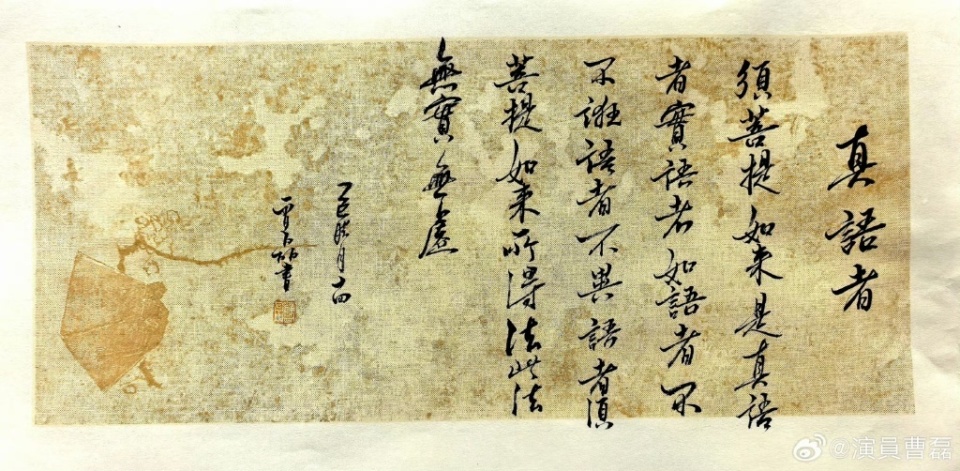 真語者
須菩提如来是真語
者實語者如語者不
不誑語者不異語者須
菩提如来所得法此法
無實無虛
月十四
書
@演員曹磊